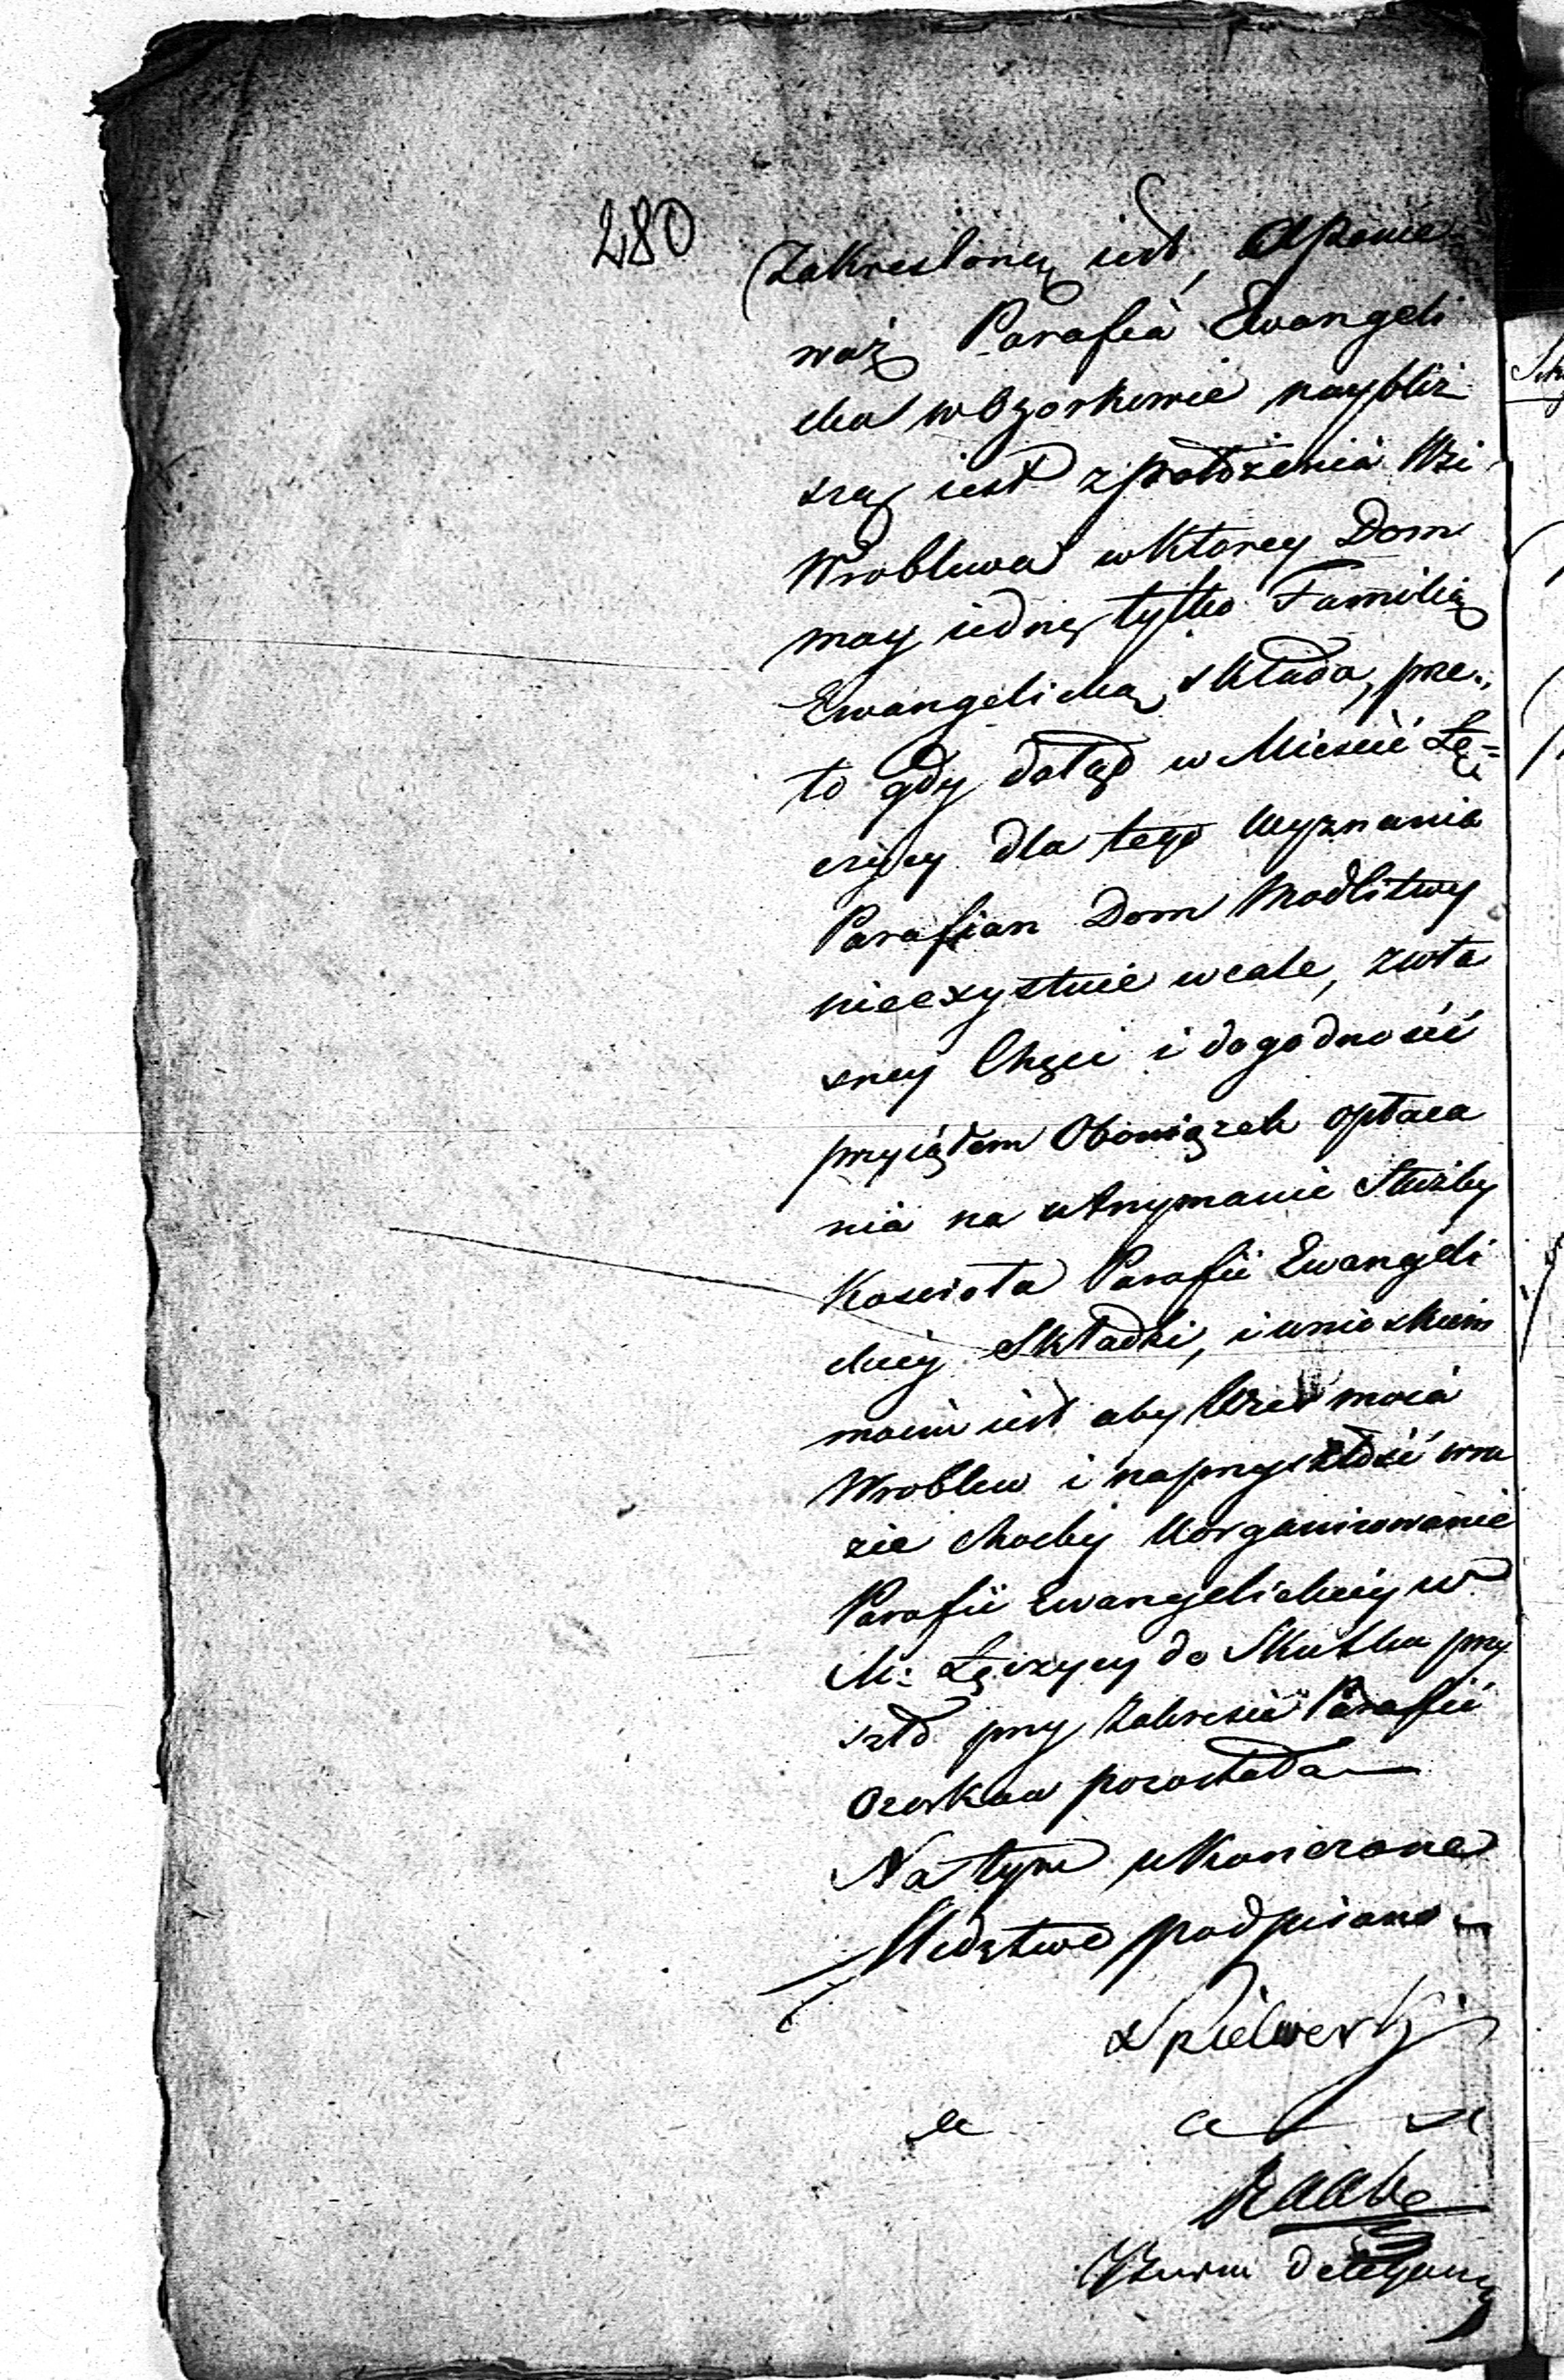 280
zakreslona iest, A ponie
waż Parafia Ewangeli
cka w Ozorkowie naybliż
szą iest z położenia Wsi
Wroblewa w ktorey Dom
moy iednę tylko Familią
Ewangelicką składa, prze„
to gdy dotąd w Miescie Łę=
czycy dla tego Wyznania
Parafian Dom Modlitwy
nieexystuie wcale, z wła
sney Chęci i dogodności
przyiąłem Obowiązek opłaca
nia na utrzymanie Służby
Koscioła Parafii Ewangeli
ckiey Składki, i wnioskiem
moim iest aby Wieś moia
Wroblew i na przyszłość w ra
zie choćby Uorganizowanie
Parafii Ewangelickiey w
M: Łęczycy do Skutku przy
szło przy zakresie Parafii
Ozorkow pozostała
Na tym ukończone
Sledztwo podpisano
a
Raabe
Burm delegowany